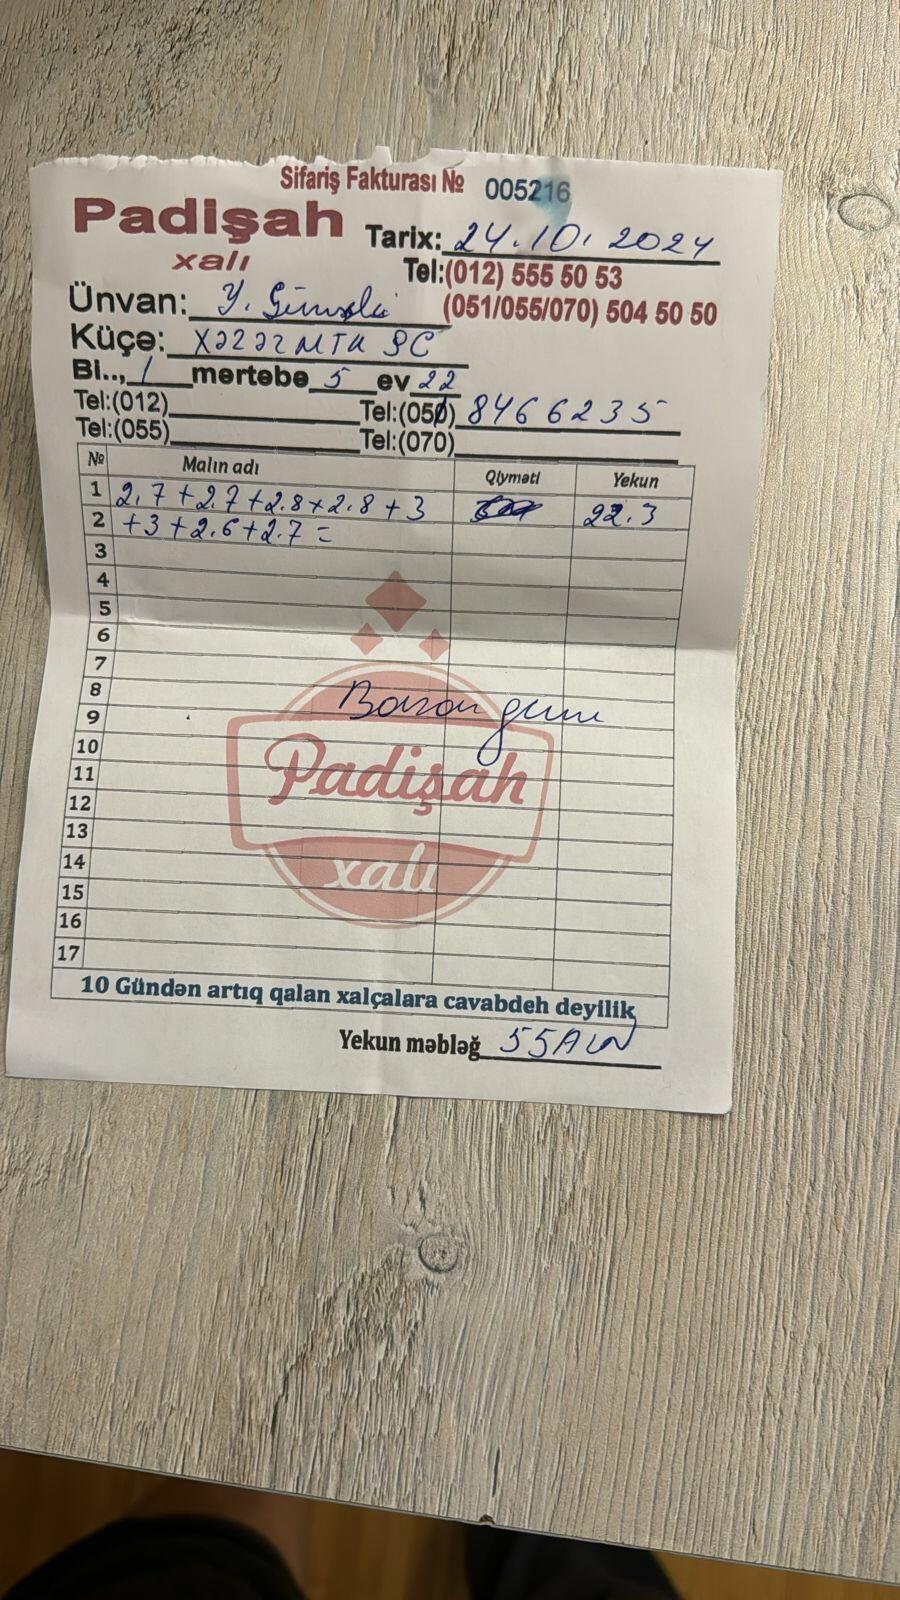 Sifariş Fakturası № 005216
Padişah
xalı
Tarix: 24.10.2024
Tel:(012) 555 50 53
(051/055/070) 504 50 50
Ünvan: Y. Günəşli
Küçə: XƏZƏR MTK ŞC
Bl.., 1 mərtəbə 5 ev 22
Tel:(012) Tel:(050) 8466235
Tel:(055) Tel:(070)
№ Malın adı Qiyməti Yekun
1 2.7+2.7+2.8+2.8+3 22.3
2 +3+2.6+2.7=
3
4
5
6
7
8
9 Bazar günü
10
11
12
13
14
15
16
17
Padişah
xalı
10 Gündən artıq qalan xalçalara cavabdeh deyilik
Yekun məbləğ 55 AZN